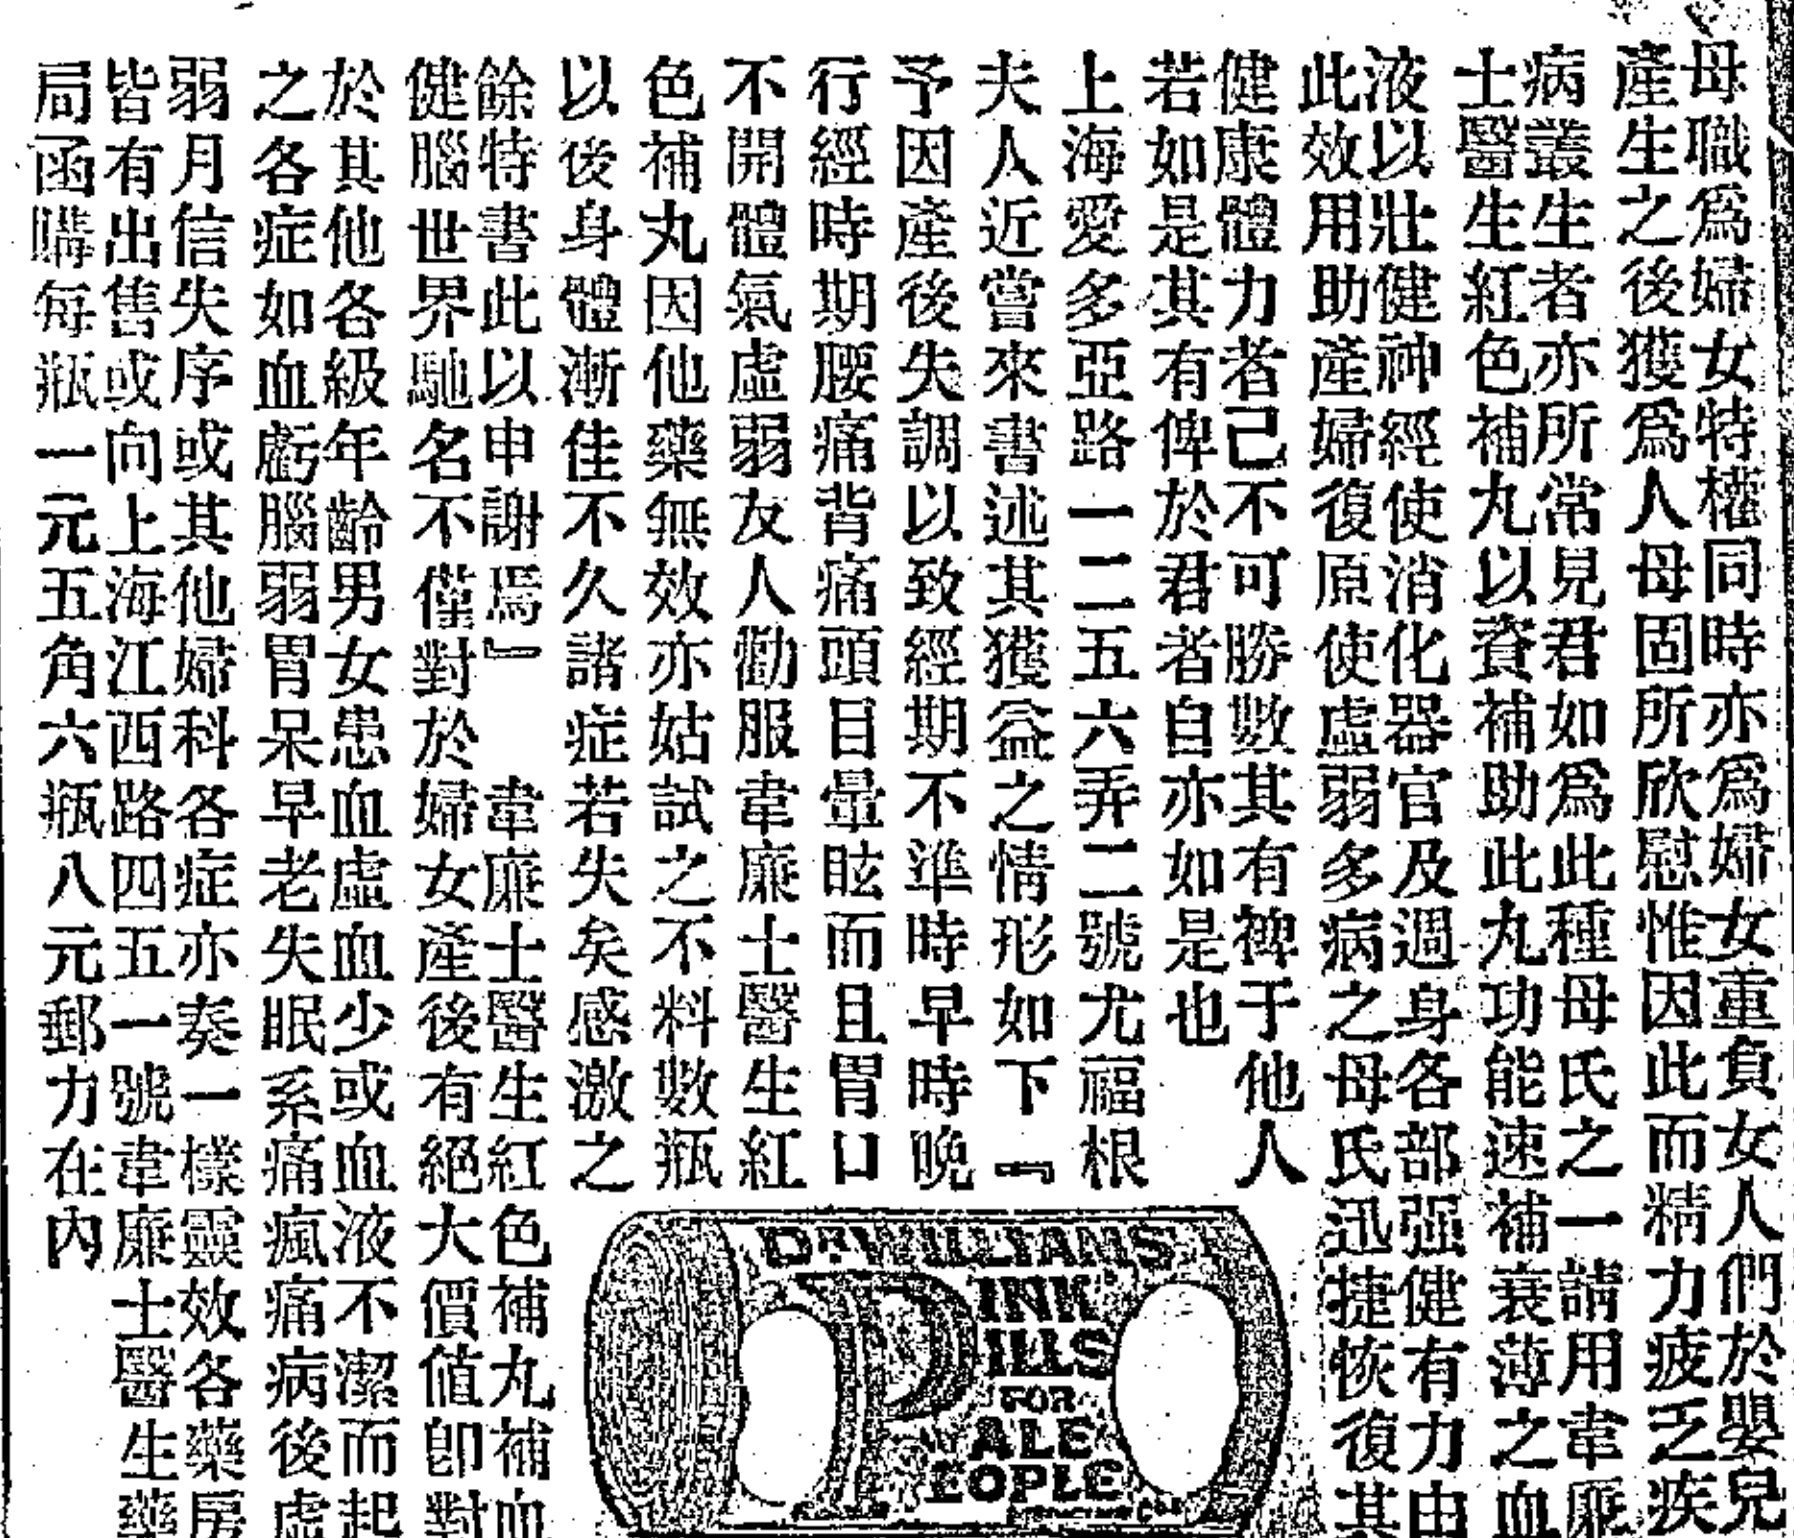 母職爲婦女特權同時亦爲婦女重負女人們於嬰兒
產生之後獲爲人母固所欣慰惟因此而精力疲乏疾
病叢生者亦所常見君如爲此種母氏之一請用韋廉
士醫生紅色補丸以資補助此丸功能速補衰薄之血
液以壯健神經使消化器官及週身各部强健有力由
此效用助產婦復原使虛弱多病之母氏迅捷恢復其
健康體力者己不可勝數其有裨于他人
若如是其有俾於君者自亦如是也
上海愛多亞路一二五六弄二號尤福根
夫人近嘗來書述其獲益之情形如下『
予因產後失調以致經期不準時早時晚
行經時期腰痛背痛頭目暈眩而且胃口
不開體氣虛弱友人勸服韋廉士醫生紅
色補丸因他藥無效亦姑試之不料數瓶
以後身體漸佳不久諸症若失矣感激之
餘特書此以申謝焉』 韋廉士醫生紅色補丸補血
健腦世界馳名不僅對於婦女產後有絕大價值卽對
於其他各級年齡男女患血虛血少或血液不潔而起
之各症如血虧腦弱胃呆早老失眠系痛瘋痛病後虛
弱月信失序或其他婦科各症亦奏一樣靈效各藥房
皆有出售或向上海江西路四五一號韋廉士醫生藥
局函購每瓶一元五角六瓶八元郵力在內
DR. WILLIAMS
PINK
PILLS
FOR
PALE
PEOPLE